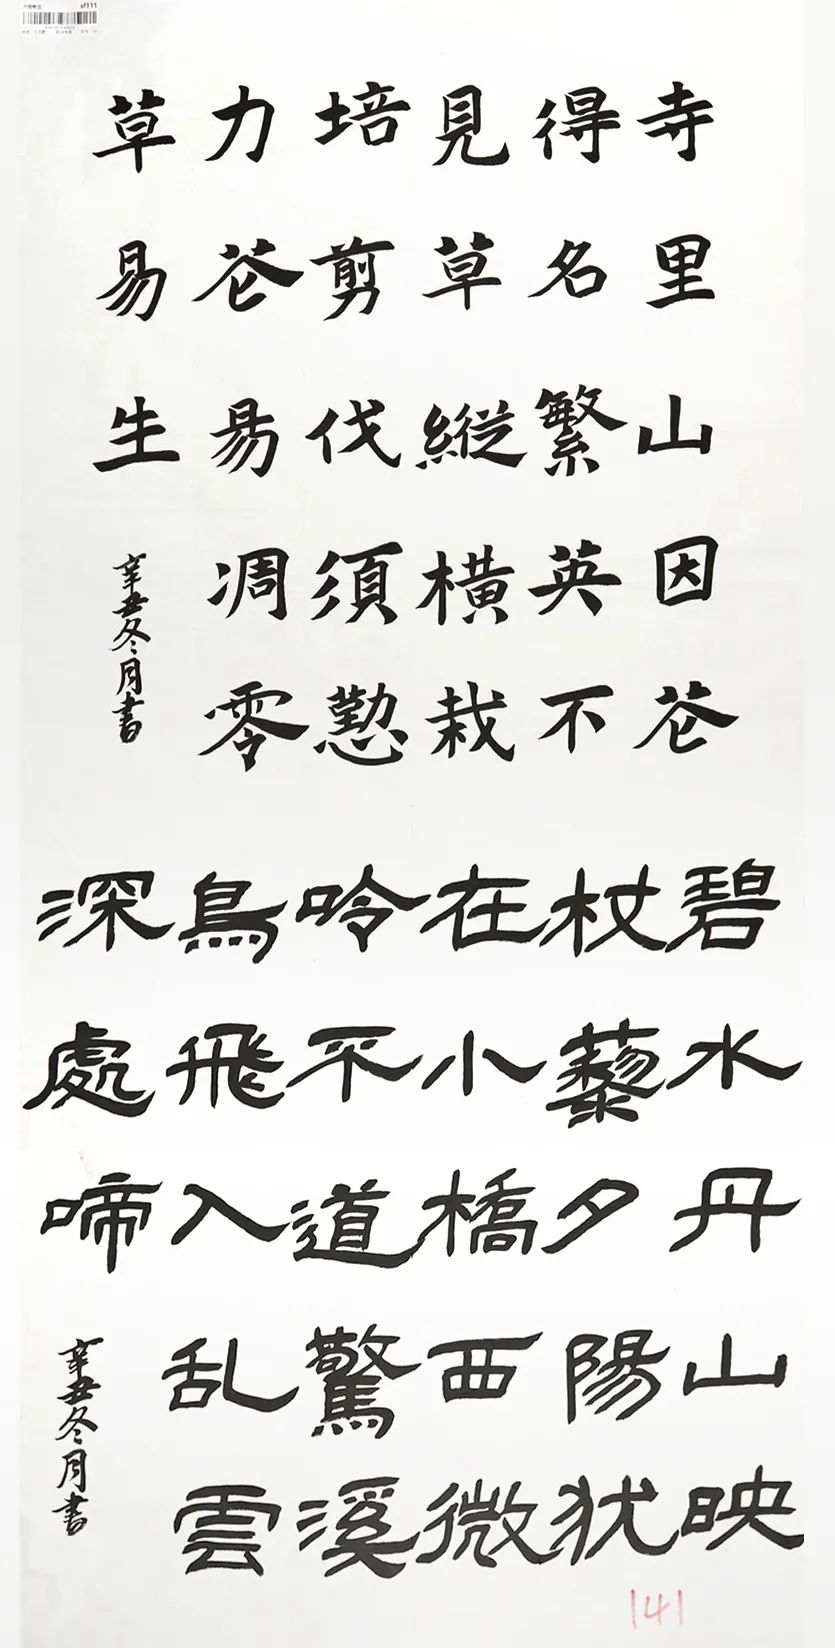 sf111
寺里山因花
得名繁英不
見草縱橫栽
培剪伐須懃
力花易凋零
草易生
辛丑冬月書
碧水丹山映
杖藜夕陽猶
在小橋西微
吟不道驚溪
鳥飛入乱雲
深處啼
辛丑冬月書
141